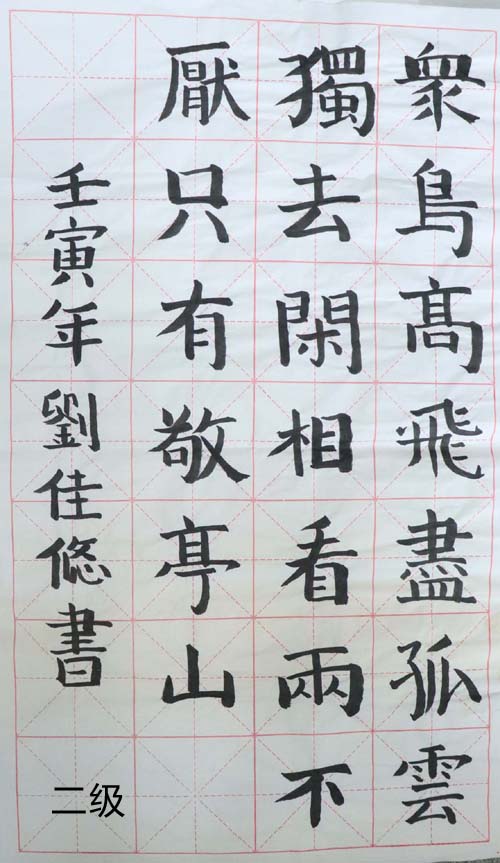 衆鳥髙飛盡孤雲
獨去閑相看兩不
厭只有敬亭山
壬寅年劉佳悠書
二级